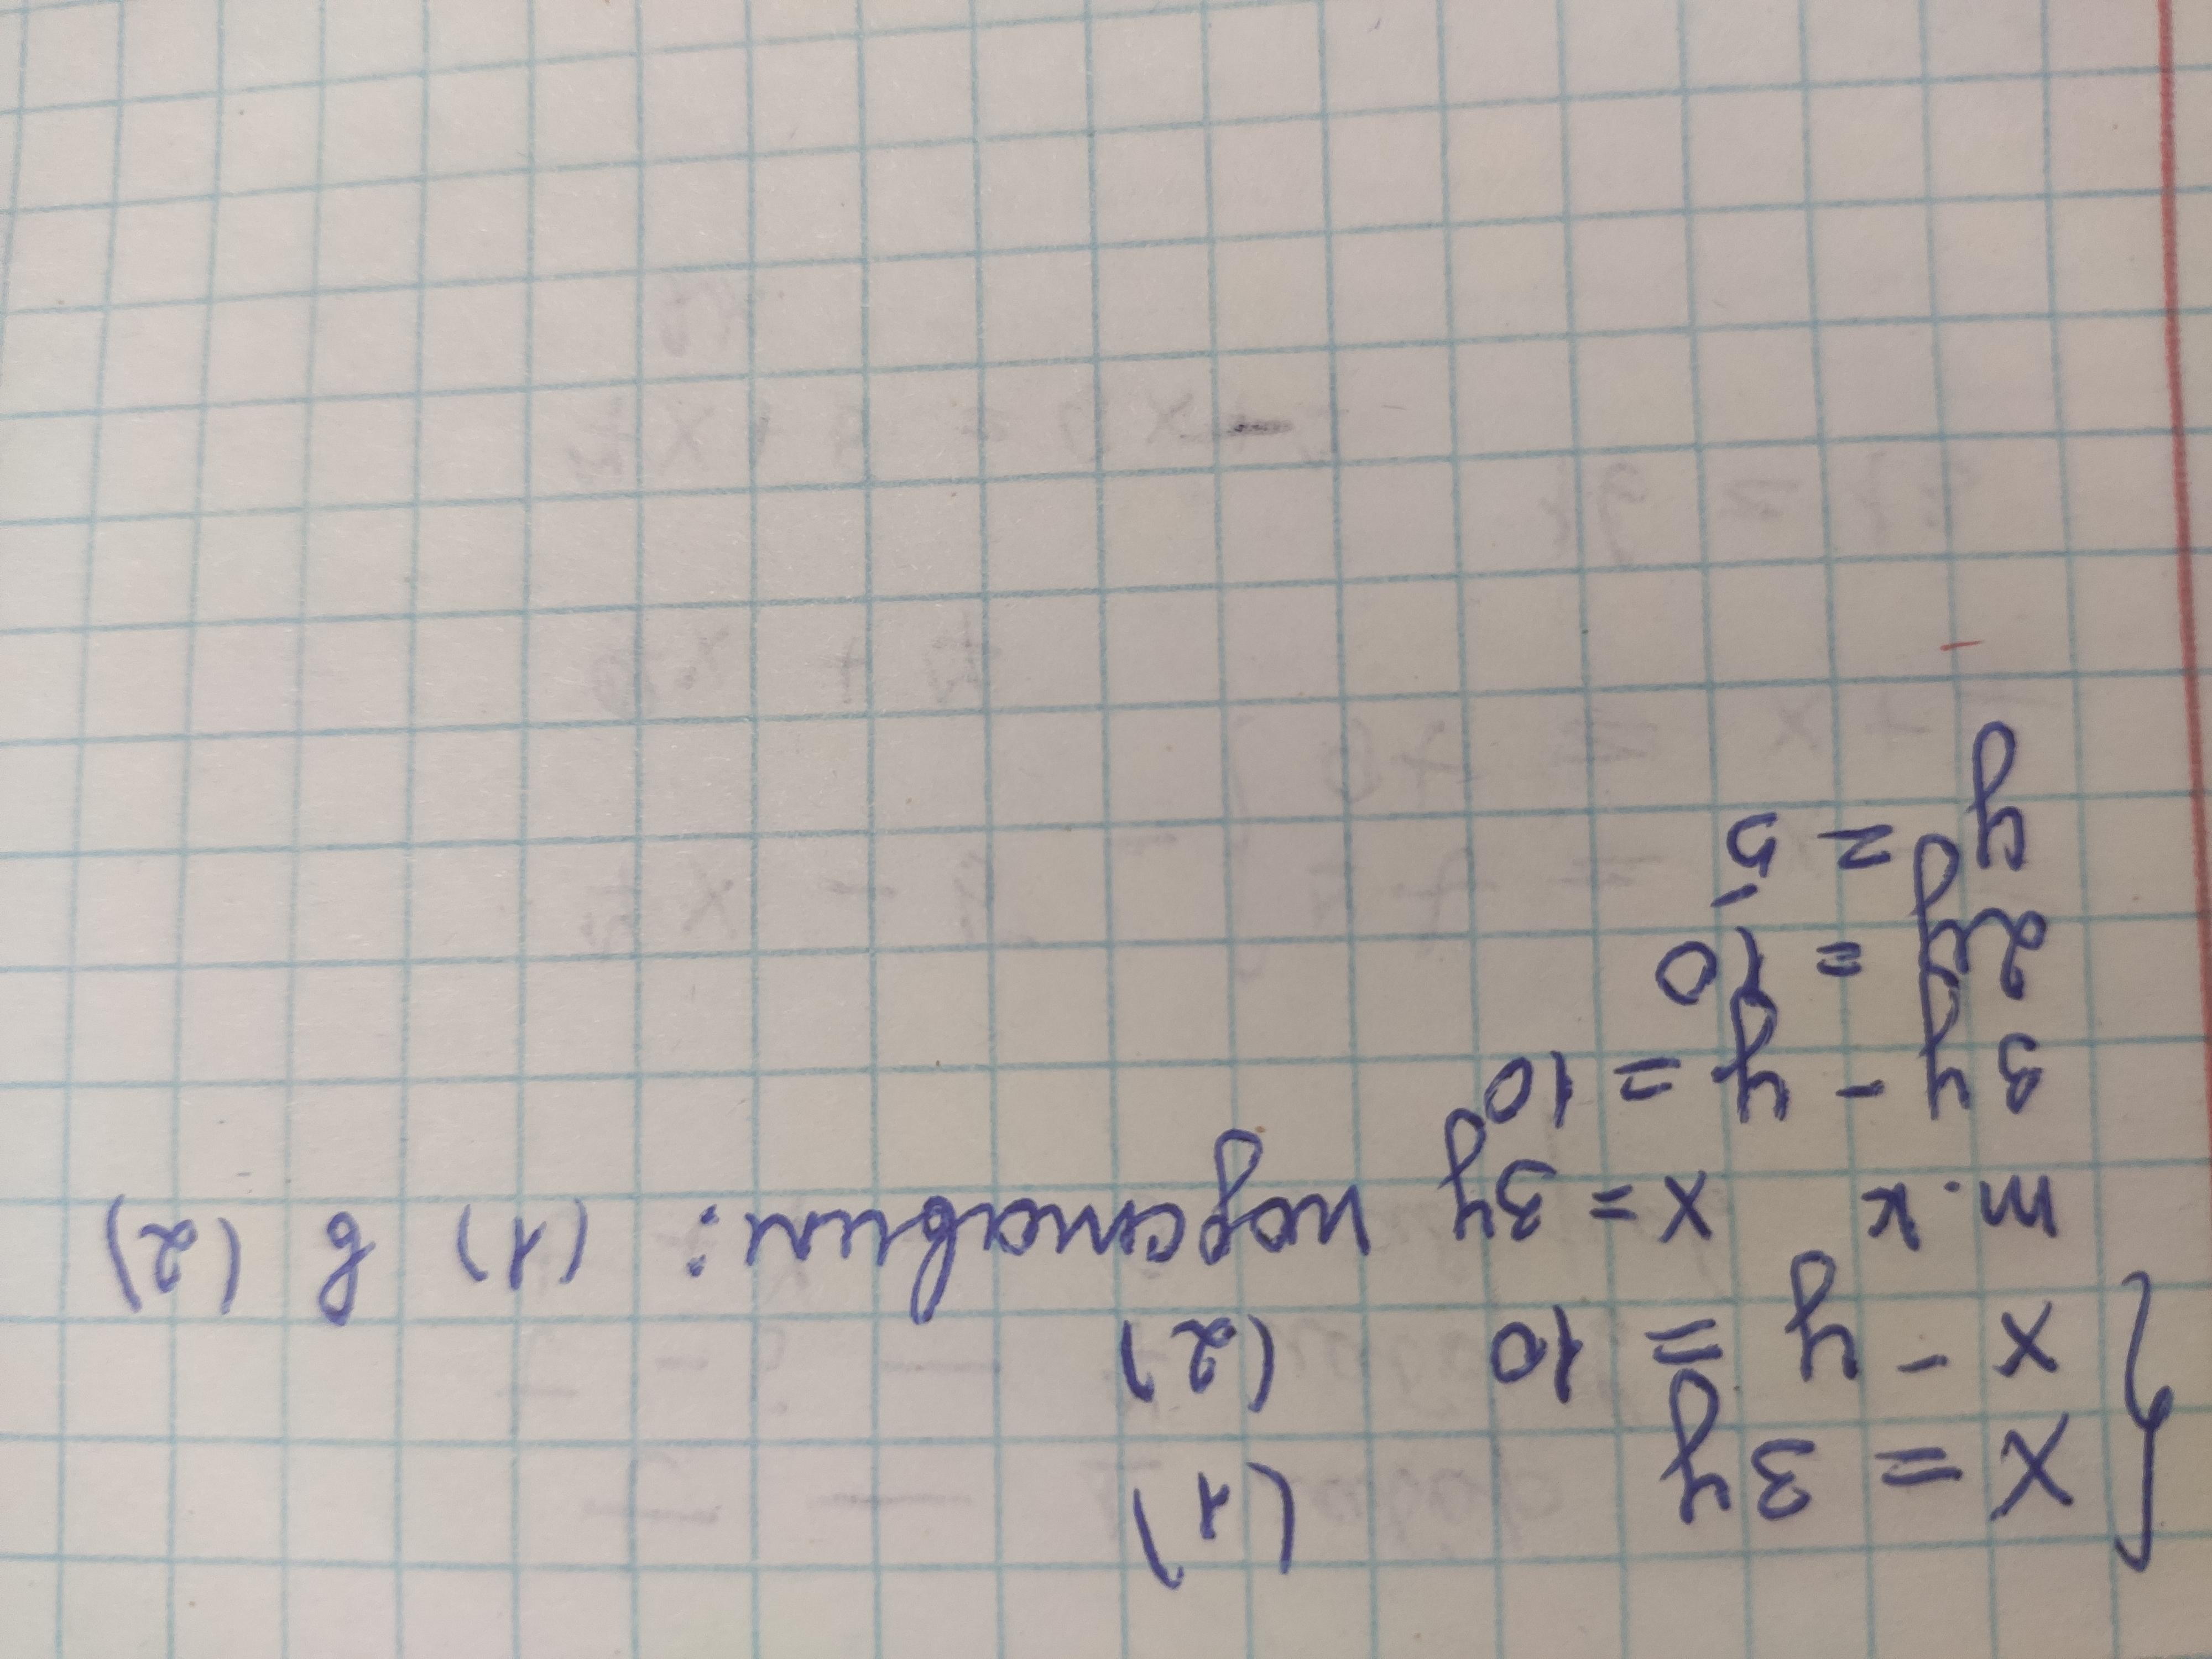 { x = 3y (1)
x - y = 10 (2)
т.к x = 3y подставим: (1) в (2)
3y - y = 10
2y = 10
y = 5